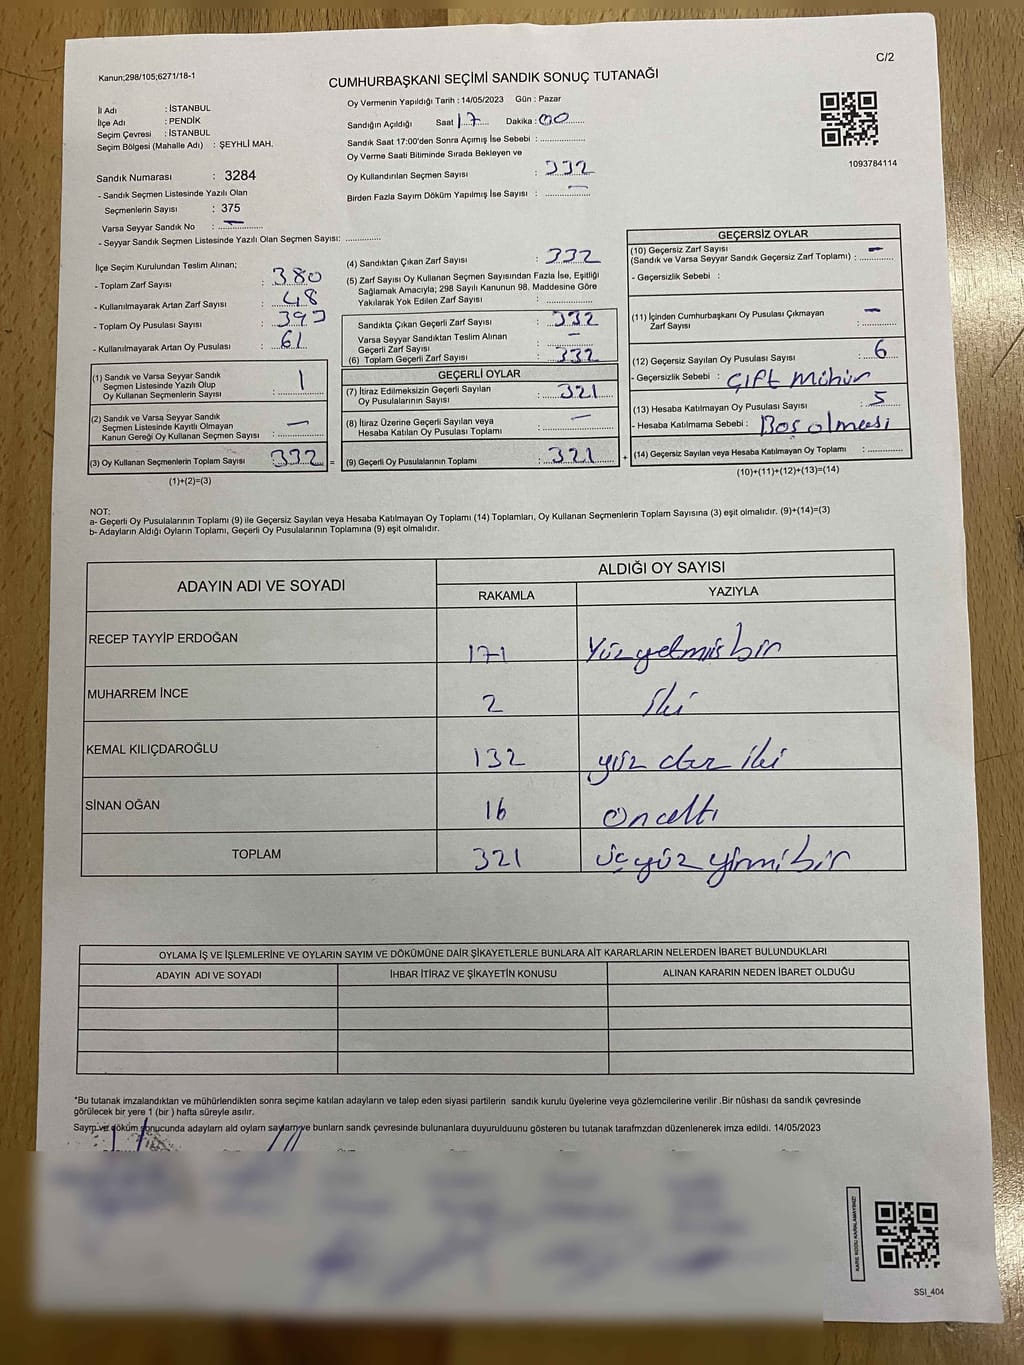 Kanun;298/105;6271/18-1
C/2
CUMHURBAŞKANI SEÇİMİ SANDIK SONUÇ TUTANAĞI
İl Adı : İSTANBUL
İlçe Adı : PENDİK
Seçim Çevresi : İSTANBUL
Seçim Bölgesi (Mahalle Adı) : ŞEYHLİ MAH.
Sandık Numarası : 3284
- Sandık Seçmen Listesinde Yazılı Olan
Seçmenlerin Sayısı : 375
Varsa Seyyar Sandık No : —
- Seyyar Sandık Seçmen Listesinde Yazılı Olan Seçmen Sayısı: ............
Oy Vermenin Yapıldığı Tarih : 14/05/2023 Gün : Pazar
Sandığın Açıldığı Saat 17 Dakika : 00
Sandık Saat 17:00'den Sonra Açımış İse Sebebi : ............
Oy Verme Saati Bitiminde Sırada Bekleyen ve
Oy Kullandırılan Seçmen Sayısı : 332
Birden Fazla Sayım Döküm Yapılmış İse Sayısı : —
1093784114
İlçe Seçim Kurulundan Teslim Alınan;
- Toplam Zarf Sayısı : 380
- Kullanılmayarak Artan Zarf Sayısı : 48
- Toplam Oy Pusulası Sayısı : 393
- Kullanılmayarak Artan Oy Pusulası : 61
(1) Sandık ve Varsa Seyyar Sandık
Seçmen Listesinde Yazılı Olup
Oy Kullanan Seçmenlerin Sayısı : 1
(2) Sandık ve Varsa Seyyar Sandık
Seçmen Listesinde Kayıtlı Olmayan
Kanun Gereği Oy Kullanan Seçmen Sayısı : —
(3) Oy Kullanan Seçmenlerin Toplam Sayısı 332 =
(1)+(2)=(3)
(4) Sandıktan Çıkan Zarf Sayısı : 332
(5) Zarf Sayısı Oy Kullanan Seçmen Sayısından Fazla İse, Eşitliği
Sağlamak Amacıyla; 298 Sayılı Kanunun 98. Maddesine Göre
Yakılarak Yok Edilen Zarf Sayısı : ............
Sandıkta Çıkan Geçerli Zarf Sayısı : 332
Varsa Seyyar Sandıktan Teslim Alınan
Geçerli Zarf Sayısı : —
(6) Toplam Geçerli Zarf Sayısı : 332
GEÇERLİ OYLAR
(7) İtiraz Edilmeksizin Geçerli Sayılan
Oy Pusulalarının Sayısı : 321
(8) İtiraz Üzerine Geçerli Sayılan veya
Hesaba Katılan Oy Pusulası Toplamı : —
(9) Geçerli Oy Pusulalarının Toplamı : 321 +
GEÇERSİZ OYLAR
(10) Geçersiz Zarf Sayısı
(Sandık ve Varsa Seyyar Sandık Geçersiz Zarf Toplamı) : —
- Geçersizlik Sebebi :
(11) İçinden Cumhurbaşkanı Oy Pusulası Çıkmayan
Zarf Sayısı : —
(12) Geçersiz Sayılan Oy Pusulası Sayısı : 6
- Geçersizlik Sebebi : Çift Mühür
(13) Hesaba Katılmayan Oy Pusulası Sayısı : 5
- Hesaba Katılmama Sebebi : Boş olması
(14) Geçersiz Sayılan veya Hesaba Katılmayan Oy Toplamı : ............
(10)+(11)+(12)+(13)=(14)
NOT:
a- Geçerli Oy Pusulalarının Toplamı (9) ile Geçersiz Sayılan veya Hesaba Katılmayan Oy Toplamı (14) Toplamları, Oy Kullanan Seçmenlerin Toplam Sayısına (3) eşit olmalıdır. (9)+(14)=(3)
b- Adayların Aldığı Oyların Toplamı, Geçerli Oy Pusulalarının Toplamına (9) eşit olmalıdır.
ADAYIN ADI VE SOYADI
ALDIĞI OY SAYISI
RAKAMLA YAZIYLA
RECEP TAYYİP ERDOĞAN 171 Yüzyetmişbir
MUHARREM İNCE 2 İki
KEMAL KILIÇDAROĞLU 132 yüz otuz iki
SİNAN OĞAN 16 Onaltı
TOPLAM 321 üçyüz yirmibir
OYLAMA İŞ VE İŞLEMLERİNE VE OYLARIN SAYIM VE DÖKÜMÜNE DAİR ŞİKAYETLERLE BUNLARA AİT KARARLARIN NELERDEN İBARET BULUNDUKLARI
ADAYIN ADI VE SOYADI İHBAR İTİRAZ VE ŞİKAYETİN KONUSU ALINAN KARARIN NEDEN İBARET OLDUĞU
*Bu tutanak imzalandıktan ve mühürlendikten sonra seçime katılan adayların ve talep eden siyasi partilerin sandık kurulu üyelerine veya gözlemcilerine verilir .Bir nüshası da sandık çevresinde
görülecek bir yere 1 (bir ) hafta süreyle asılır.
Saym ve döküm sonucunda adayların ald oyların saylarn ve bunların sandk çevresinde bulunanlara duyurulduunu gösteren bu tutanak tarafmzdan düzenlenerek imza edildi. 14/05/2023
KARE KODU KARALAMAYINIZ!
SSI_404